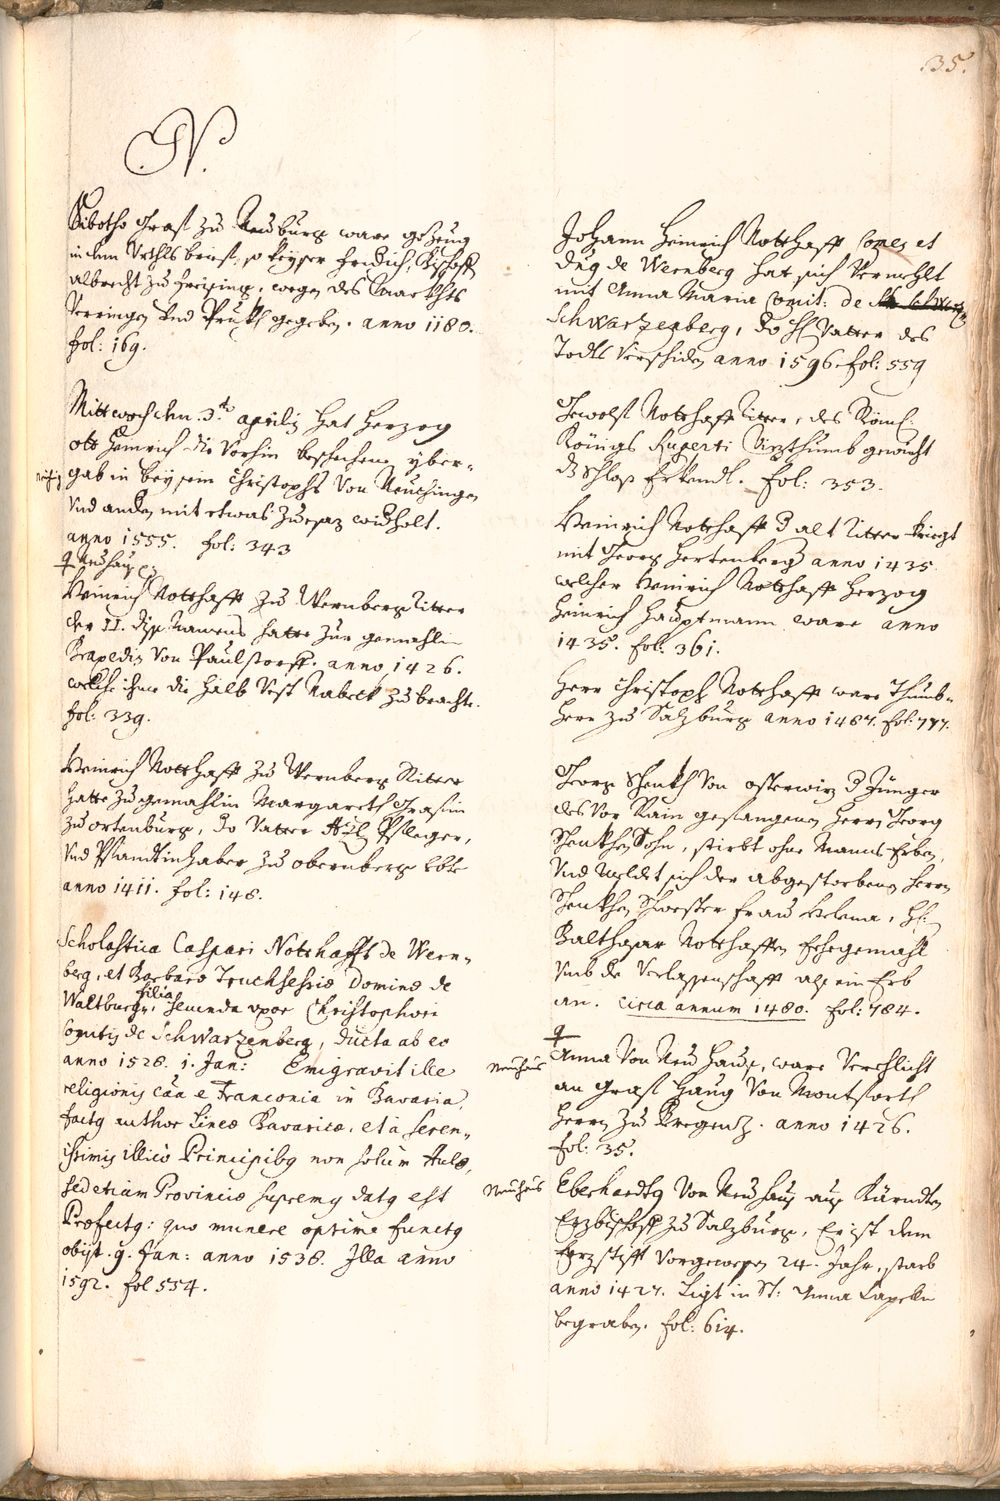 35.
N.
Sibotho Graf zu Neuburg ware gezeug
in dem Urthls brieff, so Keyser Fridrich, Bischoff
Albrecht zu Freising, wegen des Marckhts
Verringen und Pruckh gegeben. anno 1180.
fol: 169.
Mittwoch den 3.ten aprilis hat Herzog
ott Heinrich die Vorhin beschehene yber-
gab in beysein Christophs Von Neuchingen
Und andern mit etwas Zuesaz widholt.
anno 1555. fol: 343
Neuhaus
Heinrich Notthafft zu Wernberg Ritter
der II. diss Namens hatte zur gemahlin
Von Paulstorff. anno 1426.
welche ihme die halb Vest Nabeck zubrachte.
fol: 339.
Heinrich Notthafft zu Wernberg Ritter
hatte zu gemahlin Margareth Grafin
zu ortenburg, do Vatter Pfleger,
Und Pfandtinhaber zu obernberg lebte
anno 1411. fol: 148.
Scholastica Caspari Notthaffts de Wern-
berg, et Barbara Truchsessia Domina de
Waltburg, filia, secunda uxor Christophori
Comitis de Schwarzenberg, ducta ab eo
anno 1528. 1. Jan: Emigravit ille
religionis cãa e Franconia in Bavaria,
factq author Linea Bavarica, et à seren-
issimis illicò Principibq non solùm Aula,
sed etiam Provincia supremq datq est
Præfectq: quo munere optime functq
obijt. 9. Jan: anno 1538. Illa anno
1592. fol 554.
Johann Heinrich Notthafft Comes et
Dnq de Wernberg hat sich Vermehlt
mit Anna Maria Comit: de
Schwarzenberg, do Vatter des
Todts Verschiden anno 1596. fol: 559
Notthafft Ritter, des Röml:
Königs Ruperti Vizthumb gewicht
dz Schloss fol: 353.
Heinrich Notthafft d alt Ritter kriegt
mit Georg Hertenberg anno 1435
welcher Heinrich Notthafft Herzog
Heinrich Hauptmann ware anno
1435. fol: 361.
Herr Christoph Notthafft ware Thumb-
herr zu Salzburg anno 1467. fol: 777.
Georg Schenkh Von Osterwiz d Jünger
des Vor Rain gefangenen Herrn Georg
Schenkhen Sohn, stirbt ohne Manns Erben,
Und Meldet sich der abgestorbenen Herrn
Schenkhen Schwester Frau Helena,
Balthasar Notthafften Ehegemahl
Umb de Verlassenschafft als ein Erb
an. circa annum 1480. fol: 784.
Neuhaus
Anna Von Neuhauss, ware Verehlicht
an Graf Haug Von Montfort
Herrn zu Bregenz. anno 1426.
fol: 35.
Neuhaus
Eberhardtq Von Neuhaus aus Kärndten
Erzbischoff zu Salzburg, Er ist dem
Erzstifft Vorgewesen 24. Jahr, starb
anno 1427. Ligt in St: Anna Capelln
begraben. fol: 614.